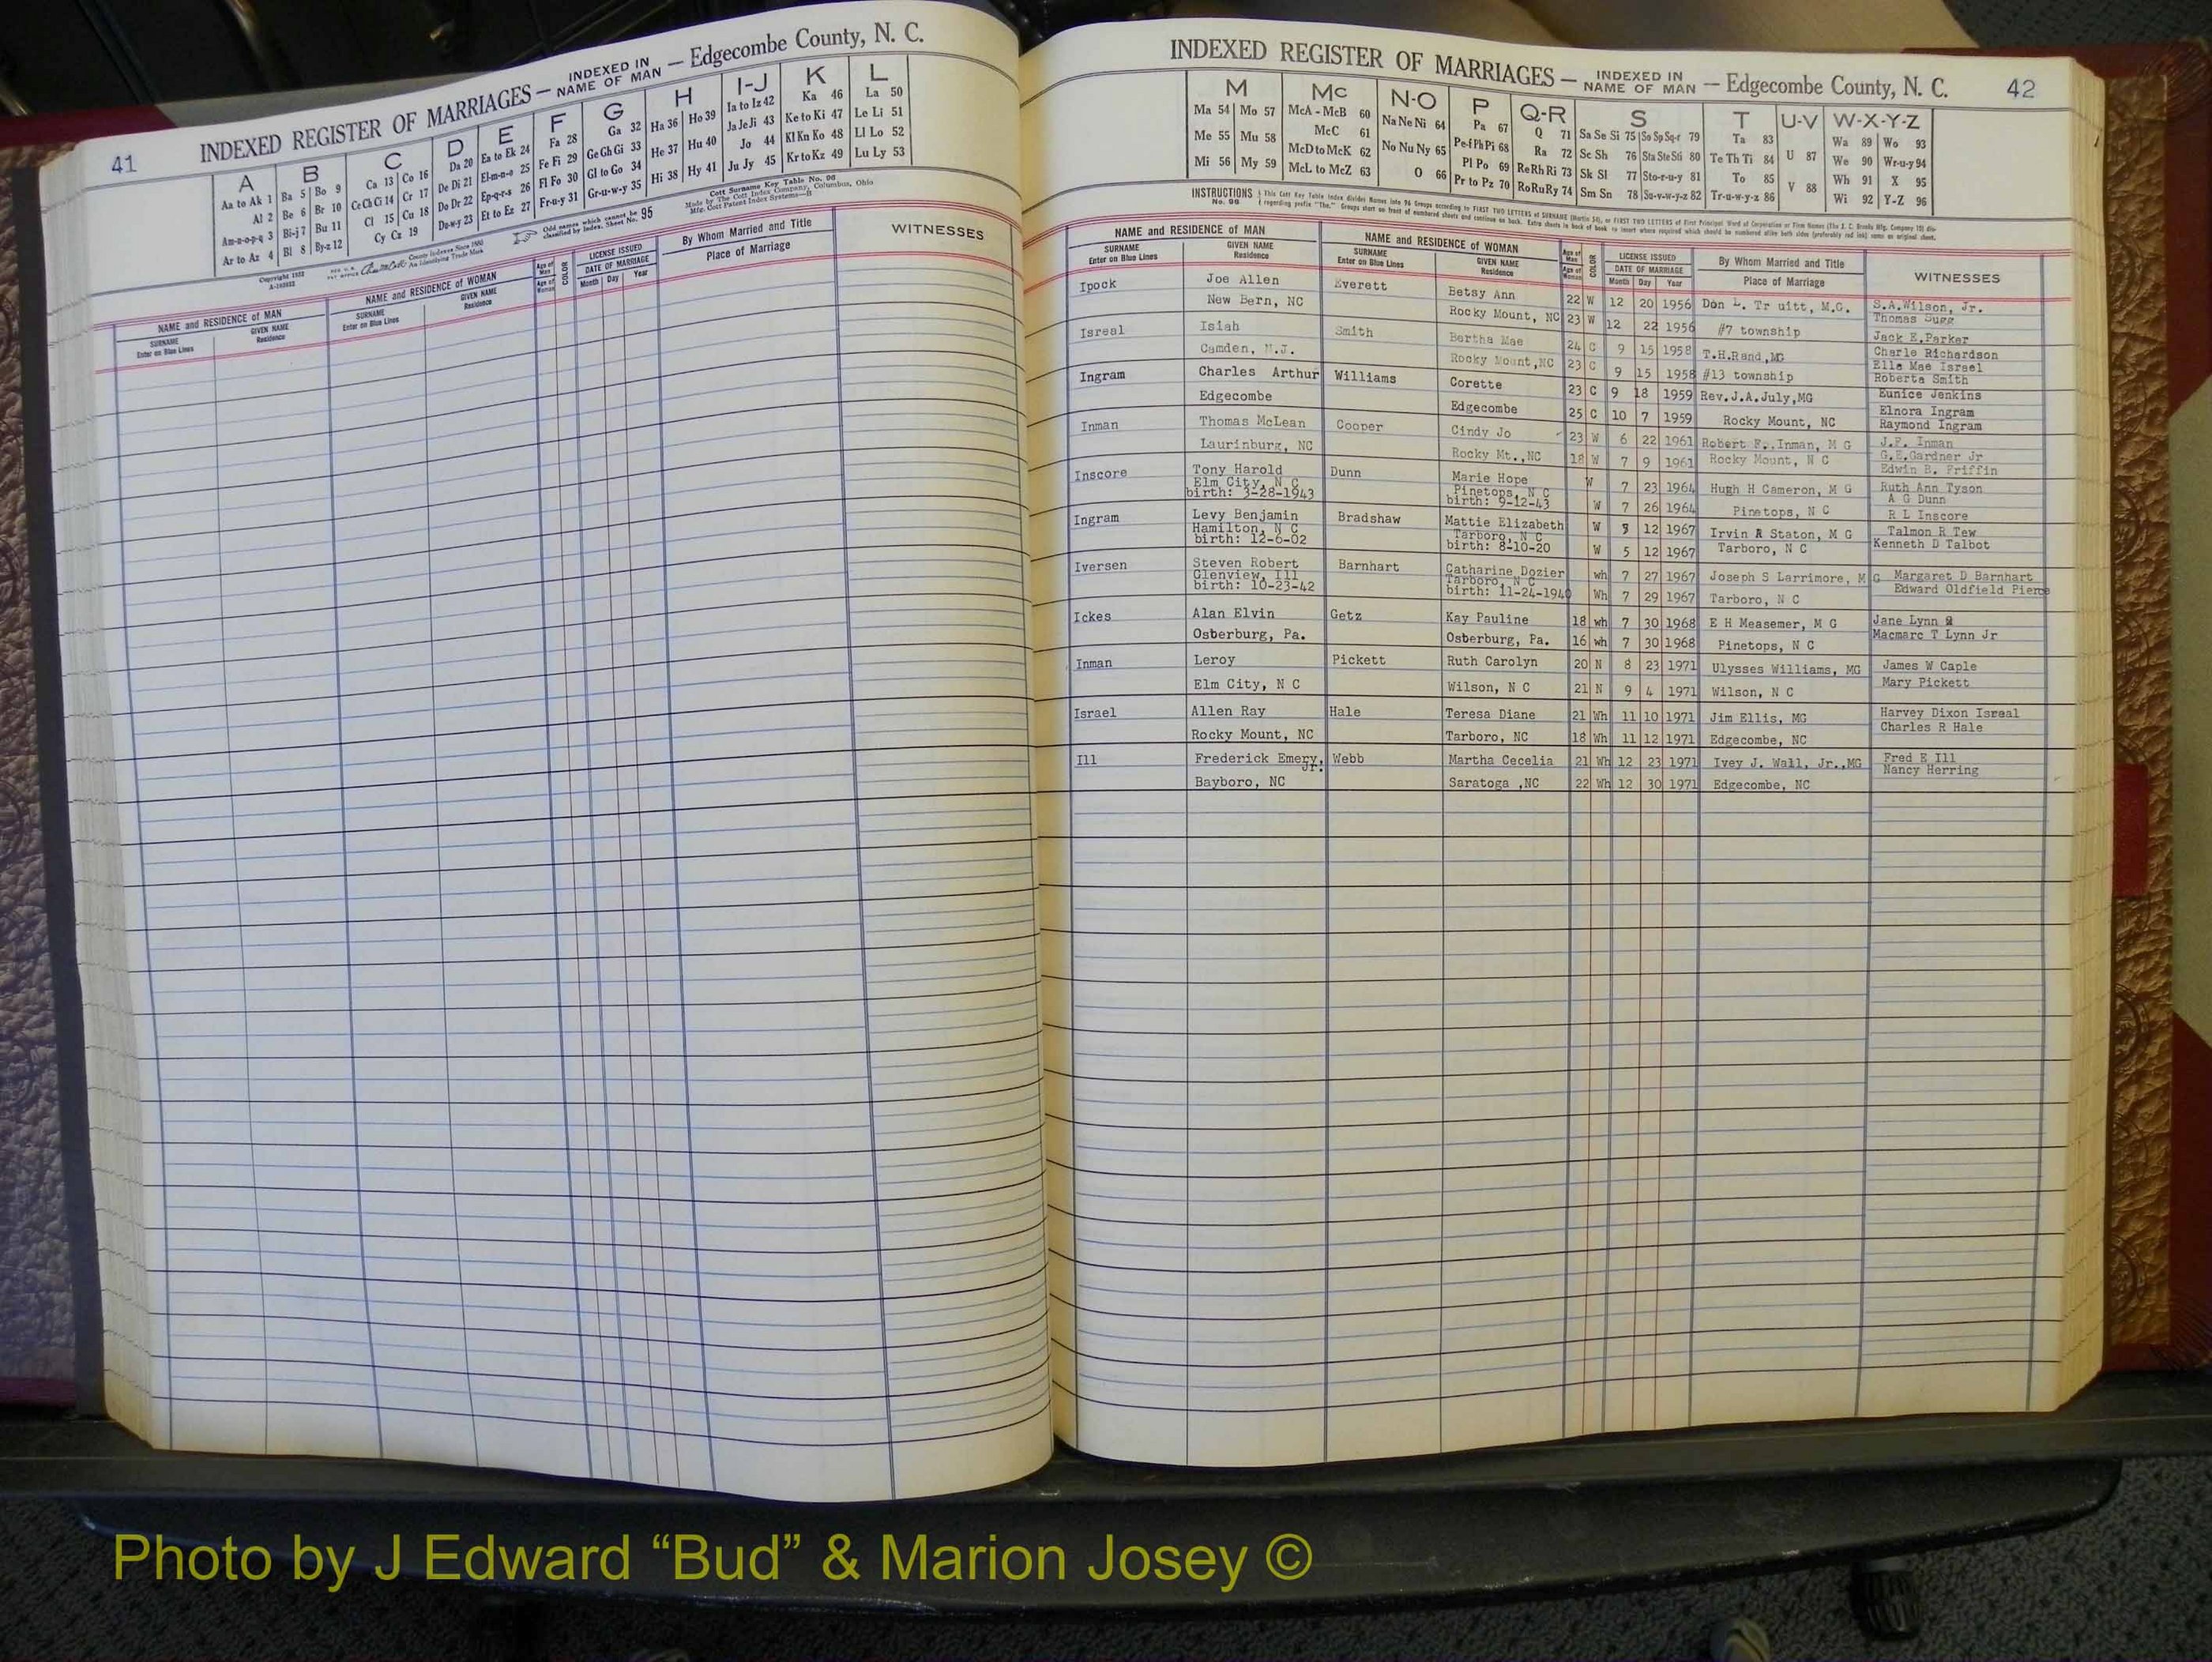 41
INDEXED REGISTER OF MARRIAGES — INDEXED IN NAME OF MAN — Edgecombe County, N. C.
A B C D E F G H I-J K L
Aa to Ak 1 Ba 5 Bo 9 Ca 13 Co 16 Da 20 Ea to Ek 24 Fa 28 Ga 32 Ha 36 Ho 39 Ia to Iz 42 Ka 46 La 50
Al 2 Be 6 Br 10 Ce Ch Ci 14 Cr 17 De Di 21 El-m-n-o 25 Fe Fi 29 Ge Gh Gi 33 He 37 Hu 40 Ja Je Ji 43 Ke to Ki 47 Le Li 51
Am-n-o-p-q 3 Bi-j 7 Bu 11 Cl 15 Cu 18 Do Dr 22 Ep-q-r-s 26 Fl Fo 30 Gl to Go 34 Hi 38 Hy 41 Jo 44 Kl Kn Ko 48 Ll Lo 52
Ar to Az 4 Bl 8 By-z 12 Cy Cz 19 Du-w-y 23 Et to Ez 27 Fr-u-y 31 Gr-u-w-y 35 Ju Jy 45 Kr to Kz 49 Lu Ly 53
Cott Surname Key Table No. 96
Made by The Cott Index Company, Columbus, Ohio
Mfg. Cott Patent Index Systems—II
Odd names which cannot be classified by Index. Sheet No. 95
County Indexes Since 1880
An Identifying Trade Mark
NAME and RESIDENCE of MAN NAME and RESIDENCE of WOMAN Age of Man COLOR LICENSE ISSUED By Whom Married and Title WITNESSES
SURNAME GIVEN NAME SURNAME GIVEN NAME Age of Woman DATE OF MARRIAGE Place of Marriage
Enter on Blue Lines Residence Enter on Blue Lines Residence Month Day Year
INDEXED REGISTER OF MARRIAGES — INDEXED IN NAME OF MAN — Edgecombe County, N. C. 42
M Mc N-O P Q-R S T U-V W-X-Y-Z
Ma 54 Mo 57 McA - McB 60 Na Ne Ni 64 Pa 67 Q 71 Sa Se Si 75 So Sp Sq-r 79 Ta 83 U 87 Wa 89 Wo 93
Me 55 Mu 58 McC 61 No Nu Ny 65 Pe-f Ph Pi 68 Ra 72 Sc Sh 76 Sta Ste Sti 80 Te Th Ti 84 V 88 We 90 Wr-u-y 94
Mi 56 My 59 McD to McK 62 O 66 Pl Po 69 Re Rh Ri 73 Sk Sl 77 Sto-r-u-y 81 To 85 Wh 91 X 95
McL to McZ 63 Pr to Pz 70 Ro Ru Ry 74 Sm Sn 78 Su-v-w-y-z 82 Tr-u-w-y-z 86 Wi 92 Y-Z 96
INSTRUCTIONS No. 96
NAME and RESIDENCE OF MAN NAME and RESIDENCE OF WOMAN Age of Man COLOR LICENSE ISSUED By Whom Married and Title WITNESSES
SURNAME GIVEN NAME SURNAME GIVEN NAME Age of Woman DATE OF MARRIAGE Place of Marriage
Enter on Blue Lines Residence Enter on Blue Lines Residence Month Day Year
Ipock Joe Allen Everett Betsy Ann 22 W 12 20 1956 Don L. Tr uitt, M.G. S.A.Wilson, Jr.
New Bern, NC Rocky Mount, NC 23 W 12 22 1956 #7 township Thomas Sugg
Jack E.Parker
Isreal Isiah Smith Bertha Mae 24 C 9 15 1958 T.H.Rand,MG Charle Richardson
Camden, N.J. Rocky Mount,NC 23 C 9 15 1958 #13 township Ella Mae Israel
Roberta Smith
Ingram Charles Arthur Williams Corette 23 C 9 18 1959 Rev.J.A.July,MG Eunice Jenkins
Edgecombe Edgecombe 25 C 10 7 1959 Rocky Mount, NC Elnora Ingram
Raymond Ingram
Inman Thomas McLean Cooper Cindy Jo 23 W 6 22 1961 Robert F.,Inman, M G J.F. Inman
Laurinburg, NC Rocky Mt.,NC 18 W 7 9 1961 Rocky Mount, N C G.E.Gardner Jr
Edwin B. Friffin
Inscore Tony Harold Dunn Marie Hope W 7 23 1964 Hugh H Cameron, M G Ruth Ann Tyson
Elm City, N C Pinetops, N C W 7 26 1964 Pinetops, N C A G Dunn
birth: 3-28-1943 birth: 9-12-43 R L Inscore
Ingram Levy Benjamin Bradshaw Mattie Elizabeth W 5 12 1967 Irvin R Staton, M G Talmon R Tew
Hamilton, N C Tarboro, N C W 5 12 1967 Tarboro, N C Kenneth D Talbot
birth: 12-6-02 birth: 8-10-20
Iversen Steven Robert Barnhart Catharine Dozier wh 7 27 1967 Joseph S Larrimore, M G Margaret D Barnhart
Glenview, Ill Tarboro, N C Wh 7 29 1967 Tarboro, N C Edward Oldfield Pierce
birth: 10-23-42 birth: 11-24-1940
Ickes Alan Elvin Getz Kay Pauline 18 wh 7 30 1968 E H Measemer, M G Jane Lynn
Osterburg, Pa. Osterburg, Pa. 16 wh 7 30 1968 Pinetops, N C Macmarc T Lynn Jr
Inman Leroy Pickett Ruth Carolyn 20 N 8 23 1971 Ulysses Williams, MG James W Caple
Elm City, N C Wilson, N C 21 N 9 4 1971 Wilson, N C Mary Pickett
Israel Allen Ray Hale Teresa Diane 21 Wh 11 10 1971 Jim Ellis, MG Harvey Dixon Isreal
Rocky Mount, NC Tarboro, NC 18 Wh 11 12 1971 Edgecombe, NC Charles R Hale
Ill Frederick Emery, Jr. Webb Martha Cecelia 21 Wh 12 23 1971 Ivey J. Wall, Jr.,MG Fred E Ill
Bayboro, NC Saratoga ,NC 22 Wh 12 30 1971 Edgecombe, NC Nancy Herring
Photo by J Edward “Bud” & Marion Josey ©